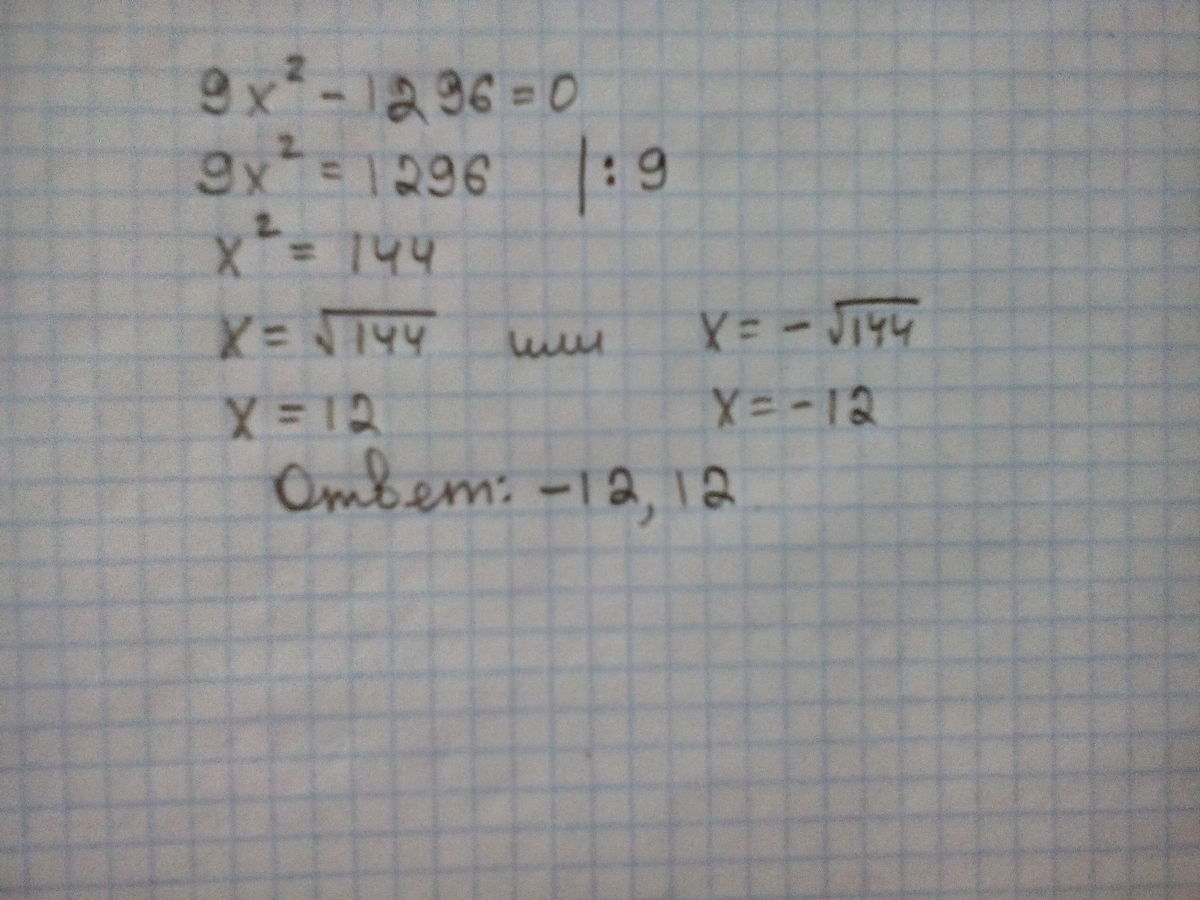 9x² - 1296 = 0
9x² = 1296 | : 9
x² = 144
x = √144 или x = - √144
x = 12 x = -12
Ответ: -12, 12